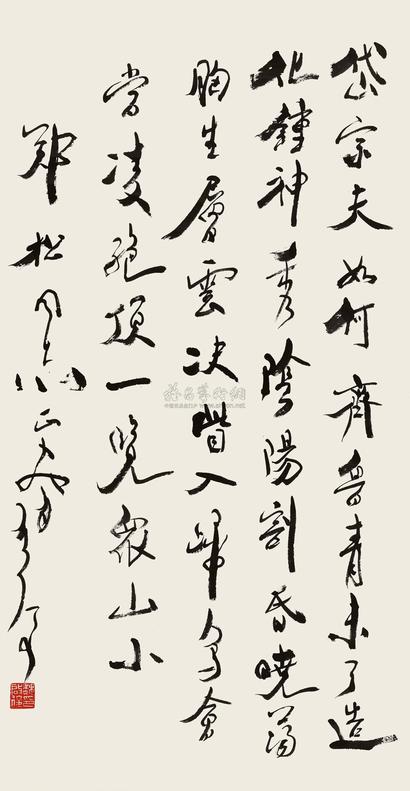 岱宗夫如何齊魯青未了造
化鍾神秀陰陽割昏曉蕩
胸生層雲決眥入歸鳥會
當凌絕頂一覽眾山小
郑松同志正